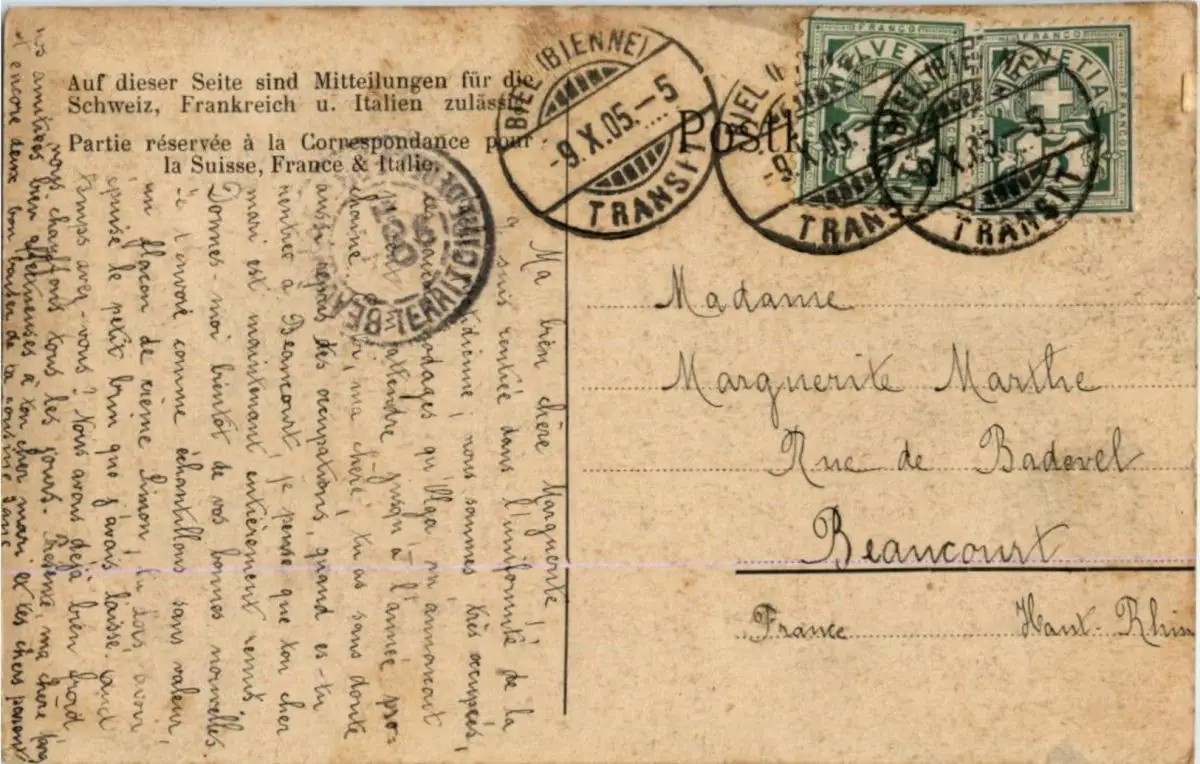 Auf dieser Seite sind Mitteilungen für die
Schweiz, Frankreich u. Italien zulässig.
Partie réservée à la Correspondance pour
la Suisse, France & Italie.
Postk
BIEL (BIENNE)
-9.X.05.-5
TRANSIT
BIEL (BIENNE)
-9.X.05.-5
TRANSIT
BIEL (BIENNE)
-9.X.05.-5
TRANSIT
FRANCO
HELVETIA
FRANCO
FRANCO
HELVETIA
FRANCO
BEAUCOURT
TERRIT
05
Madame
Marguerite Marthe
Rue de Badevel
Beaucourt
France Haut-Rhin
Ma bien chère Marguerite!
suis rentrée dans l'uniformité de la
dienne; nous sommes très occupées,
qu'Olga m'annonçait
attendre jusqu'à l'année pro-
chaine ma chère tu as sans doute
aussi repris des occupations, quand es-tu
rentrée à Beaucourt? je pense que ton cher
mari est maintenant entièrement remis
Donnes moi bientôt de vos bonnes nouvelles.
t'envoie comme échantillons sans valeur,
un flacon de crême limon,
épuisé le petit brin que j'avais laissé. Quel
temps avez-vous? Nous avons déjà bien froid
nous chauffons tous les jours.
nos amitiés bien affectueuses à ton cher mari et tes chers parents
et encore deux bon baiser de ta cousine Jane